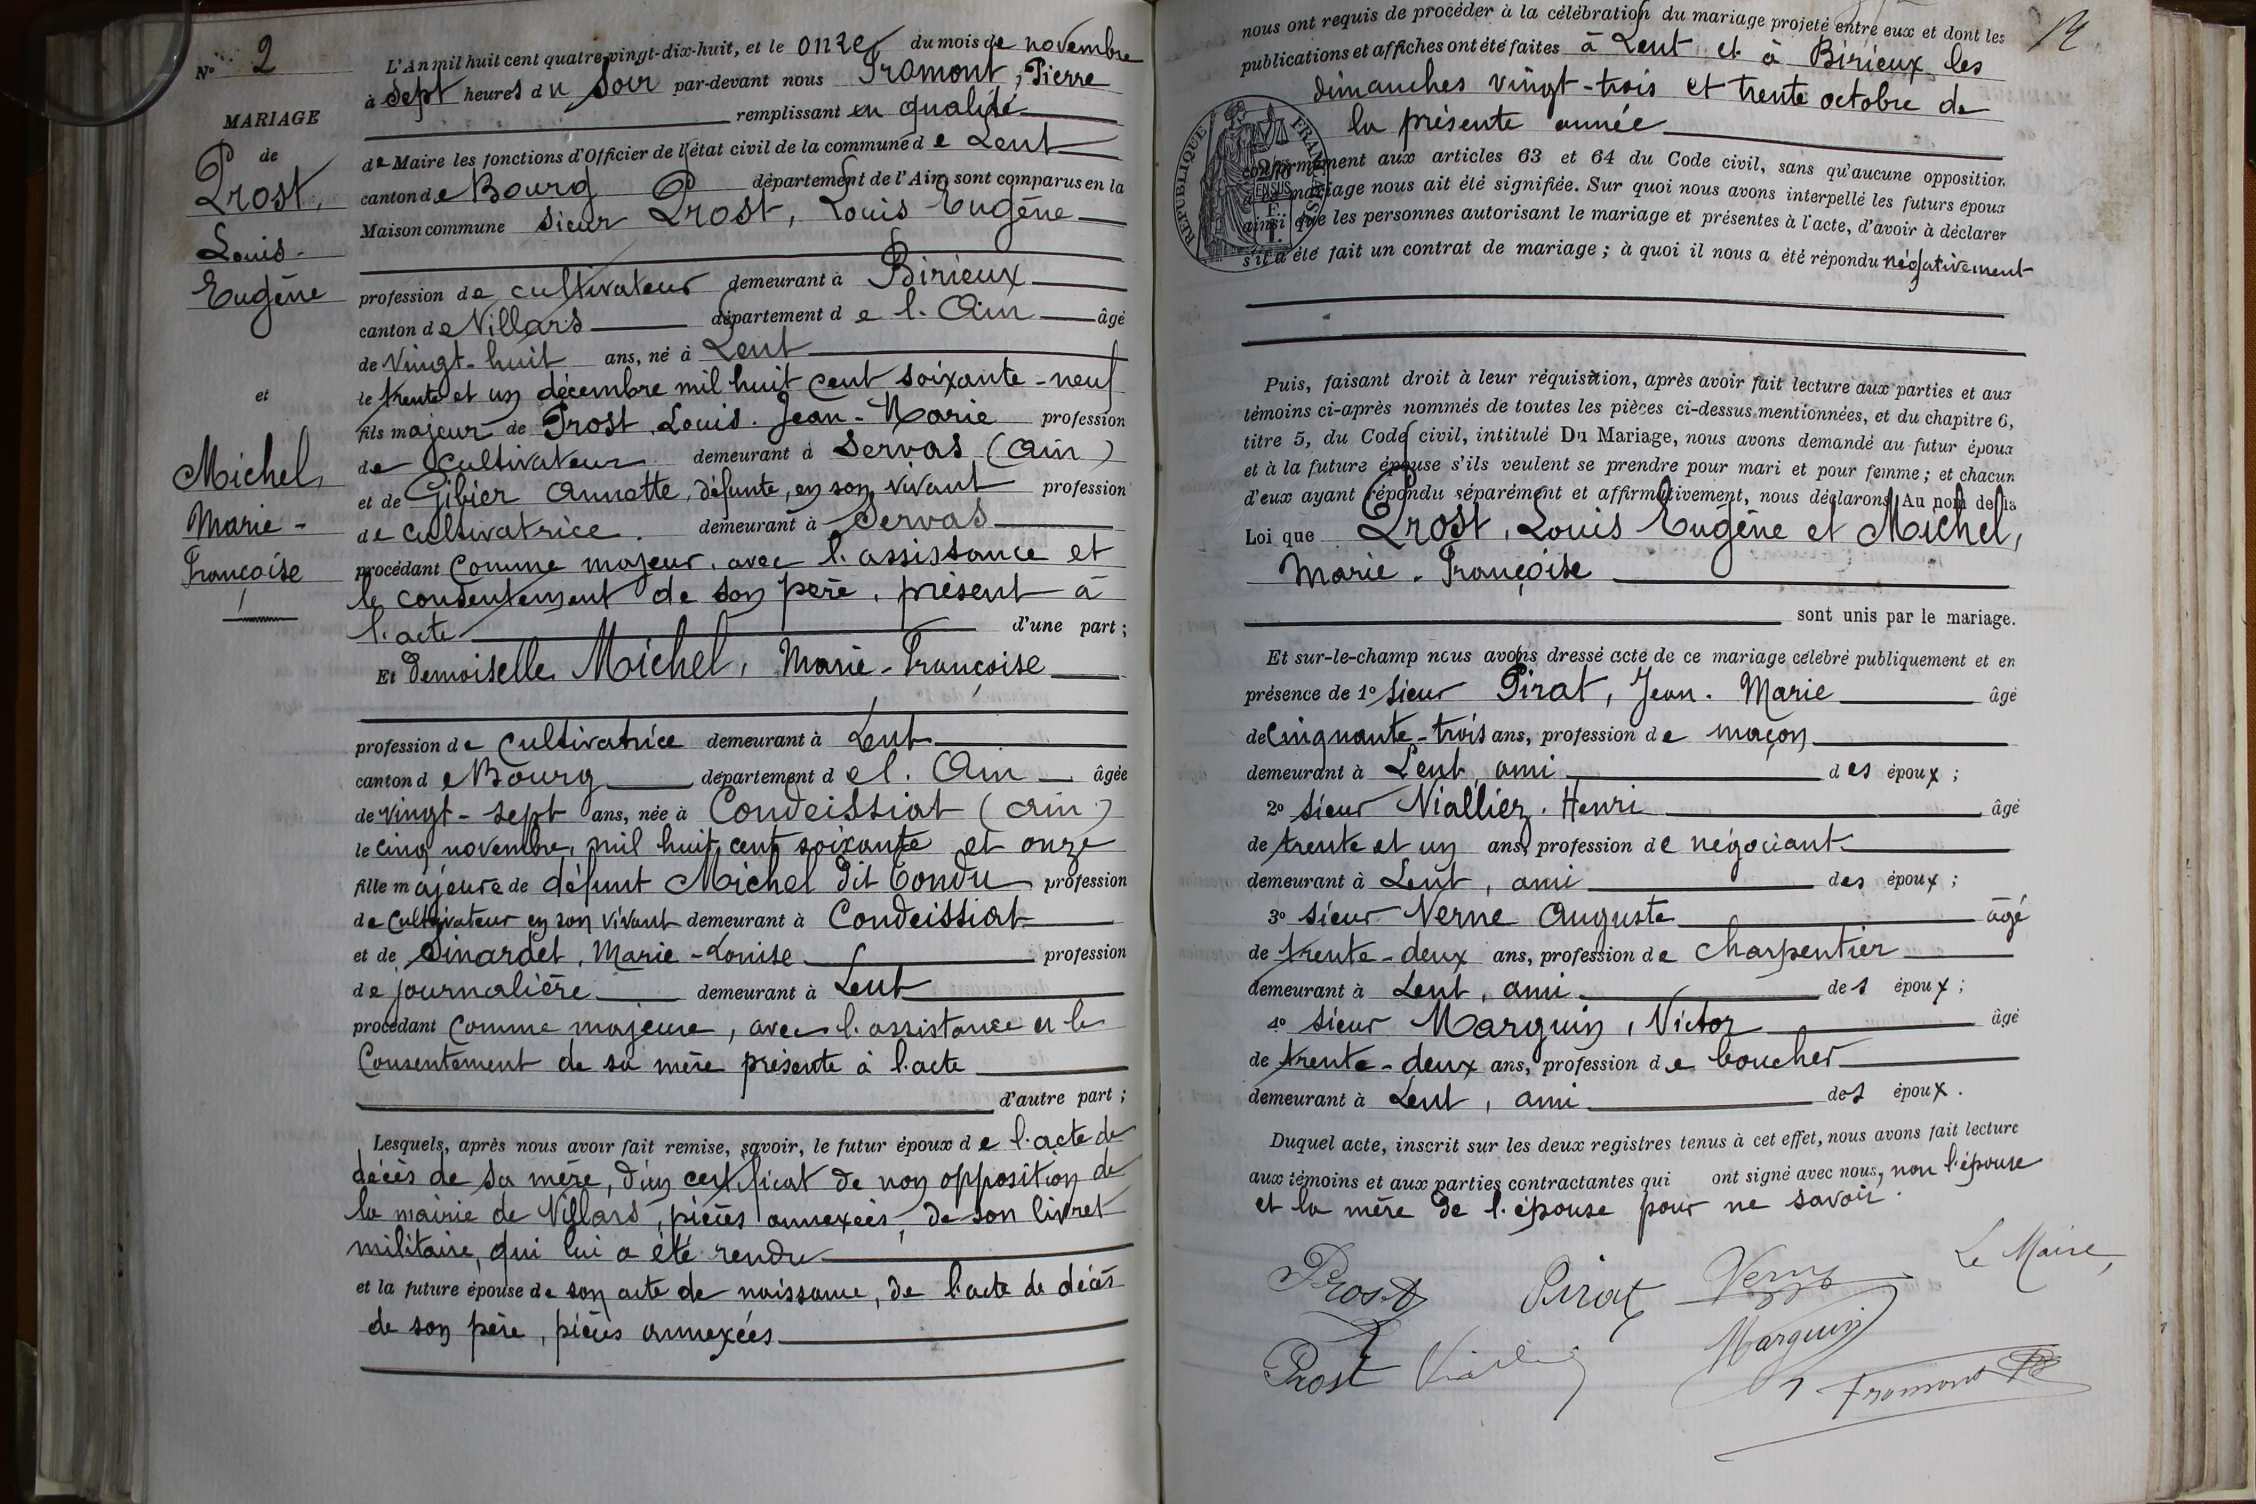 Nº 2
MARIAGE
de
Prost,
Louis-
Eugène
et
Michel,
Marie-
Françoise
L'An mil huit cent quatre-vingt-dix-huit, et le onze du mois de novembre
à sept heures du soir par-devant nous Fromont, Pierre
remplissant en qualité
de Maire les fonctions d'Officier de l'état civil de la commune de Lent
canton de Bourg département de l'Ain sont comparus en la
Maison commune sieur Prost, Louis Eugène
profession de cultivateur demeurant à Birieux
canton de Villars département de l'Ain âgé
de vingt-huit ans, né à Lent
le trente et un décembre mil huit cent soixante-neuf
fils majeur de Prost Louis Jean-Marie profession
de cultivateur demeurant à Servas (Ain)
et de Gibier Annette, défunte, en son vivant profession
de cultivatrice. demeurant à Servas
procédant comme majeur, avec l'assistance et
le consentement de son père, présent à
l'acte d'une part;
Et demoiselle Michel, Marie-Françoise
profession de cultivatrice demeurant à Lent
canton de Bourg département de l'Ain âgée
de vingt-sept ans, née à Condeissiat (Ain)
le cinq novembre, mil huit cent soixante et onze
fille majeure de défunt Michel dit Condu profession
de cultivateur en son vivant demeurant à Condeissiat
et de Sinardet, Marie-Louise profession
de journalière demeurant à Lent
procédant comme majeure, avec l'assistance et le
consentement de sa mère présente à l'acte
d'autre part;
Lesquels, après nous avoir fait remise, savoir, le futur époux de l'acte de
décès de sa mère, d'un certificat de non opposition de
la mairie de Villars, pièces annexées, de son livret
militaire, qui lui a été rendu
et la future épouse de son acte de naissance, de l'acte de décès
de son père, pièces annexées
nous ont requis de procéder à la célébration du mariage projeté entre eux et dont les
publications et affiches ont été faites à Lent et à Birieux les
dimanches vingt-trois et trente octobre de
la présente année
conformément aux articles 63 et 64 du Code civil, sans qu'aucune opposition
à ce mariage nous ait été signifiée. Sur quoi nous avons interpellé les futurs époux
ainsi que les personnes autorisant le mariage et présentes à l'acte, d'avoir à déclarer
s'il a été fait un contrat de mariage; à quoi il nous a été répondu négativement
RÉPUBLIQUE FRANÇAISE
Puis, faisant droit à leur réquisition, après avoir fait lecture aux parties et aux
témoins ci-après nommés de toutes les pièces ci-dessus mentionnées, et du chapitre 6,
titre 5, du Code civil, intitulé Du Mariage, nous avons demandé au futur époux
et à la future épouse s'ils veulent se prendre pour mari et pour femme; et chacun
d'eux ayant répondu séparément et affirmativement, nous déclarons Au nom de la
Loi que Prost, Louis Eugène et Michel,
Marie-Françoise
sont unis par le mariage.
Et sur-le-champ nous avons dressé acte de ce mariage célébré publiquement et en
présence de 1º sieur Pirat, Jean-Marie âgé
de cinquante-trois ans, profession de maçon
demeurant à Lent, ami des époux;
2º sieur Viallier. Henri âgé
de trente et un ans, profession de négociant
demeurant à Lent, ami des époux;
3º sieur Verne Auguste âgé
de trente-deux ans, profession de charpentier
demeurant à Lent, ami des époux;
4º sieur Marguin, Victor âgé
de trente-deux ans, profession de boucher
demeurant à Lent, ami des époux.
Duquel acte, inscrit sur les deux registres tenus à cet effet, nous avons fait lecture
aux témoins et aux parties contractantes qui ont signé avec nous, non l'épouse
et la mère de l'épouse pour ne savoir.
Le Maire,
Prost Pirat Verne
Marguin
Prost Fromont